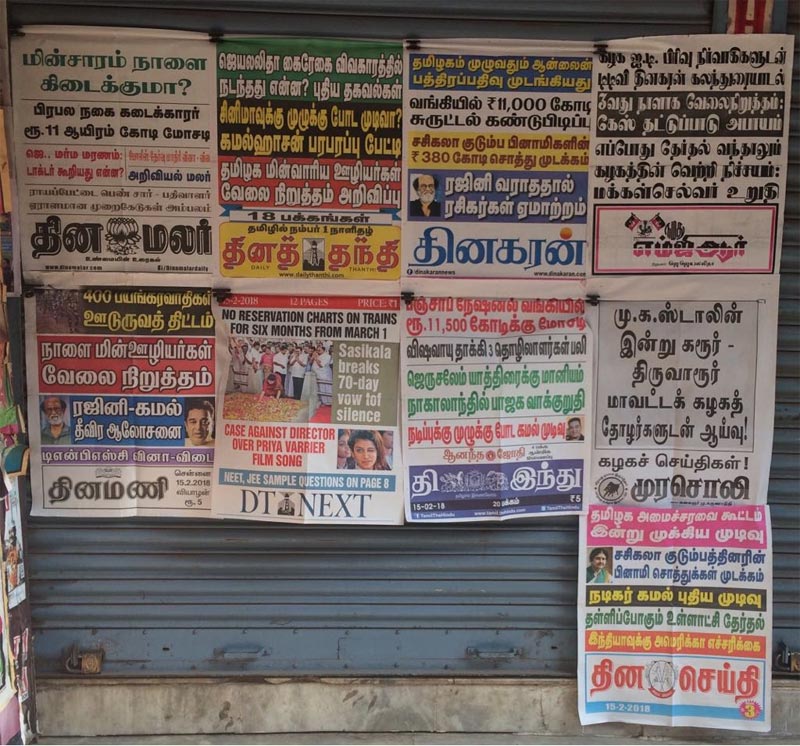 மின்சாரம் நாளை
கிடைக்குமா?
பிரபல நகை கடைக்காரர்
ரூ.11 ஆயிரம் கோடி மோசடி
ஜெ.. மர்ம மரணம்:
டாக்டர் கூறியது என்ன?
அறிவியல் மலர்
ராயப்பேட்டை பெண் சார் - பதிவாளர்
ஏராளமான முறைகேடுகள் அம்பலம்
தின மலர்
உண்மையின் உரைகல்
www.dinamalar.com
ஜெயலலிதா கைரேகை விவகாரத்தில்
நடந்தது என்ன? புதிய தகவல்கள்
சினிமாவுக்கு முழுக்கு போட முடிவா?
கமல்ஹாசன் பரபரப்பு பேட்டி
தமிழக மின்வாரிய ஊழியர்கள்
வேலை நிறுத்தம் அறிவிப்பு
18 பக்கங்கள்
தமிழில் நம்பர் 1 நாளிதழ்
தினத் தந்தி
DAILY THANTHI
www.dailythanthi.com
தமிழகம் முழுவதும் ஆன்லைன்
பத்திரப்பதிவு முடங்கியது
வங்கியில் ₹11,000 கோடி
சுருட்டல் கண்டுபிடிப்பு
சசிகலா குடும்ப பினாமிகளின்
₹380 கோடி சொத்து முடக்கம்
ரஜினி வராததால்
ரசிகர்கள் ஏமாற்றம்
தினகரன்
dinakarannews
www.dinakaran.com
கழக ஐ.டி. பிரிவு நிர்வாகிகளுடன்
டிடிவி தினகரன் கலந்துரையாடல்
வேலைநிறுத்தம்:
கேஸ் தட்டுப்பாடு அபாயம்
எப்போது தேர்தல் வந்தாலும்
கழகத்தின் வெற்றி நிச்சயம்:
மக்கள்செல்வர் உறுதி
400 பயங்கரவாதிகள்
ஊடுருவத் திட்டம்
நாளை மின்ஊழியர்கள்
வேலை நிறுத்தம்
ரஜினி-கமல்
தீவிர ஆலோசனை
டிஎன்பிஎஸ்சி வினா-விடை
தினமணி
சென்னை
15.2.2018
வியாழன்
ரூ. 5
15-2-2018 12 PAGES PRICE ₹1
NO RESERVATION CHARTS ON TRAINS
FOR SIX MONTHS FROM MARCH 1
Sasikala
breaks
70-day
vow of
silence
CASE AGAINST DIRECTOR
OVER PRIYA VARRIER
FILM SONG
NEET, JEE SAMPLE QUESTIONS ON PAGE 8
DT NEXT
பஞ்சாப் நேஷனல் வங்கியில்
ரூ.11,500 கோடிக்கு மோசடி
விஷவாயு தாக்கி 3 தொழிலாளர்கள் பலி
ஜெருசலேம் யாத்திரைக்கு மானியம்
நாகாலாந்தில் பாஜக வாக்குறுதி
நடிப்புக்கு முழுக்கு போட கமல் முடிவு
ஆனந்த ஜோதி
தி இந்து
15-02-18
20 பக்கம்
₹5
மு.க.ஸ்டாலின்
இன்று கரூர் -
திருவாரூர்
மாவட்டக் கழகத்
தோழர்களுடன் ஆய்வு!
கழகச் செய்திகள்!
முரசொலி
தமிழக அமைச்சரவை கூட்டம்
இன்று முக்கிய முடிவு
சசிகலா குடும்பத்தினரின்
பினாமி சொத்துக்கள் முடக்கம்
நடிகர் கமல் புதிய முடிவு
தள்ளிப்போகும் உள்ளாட்சி தேர்தல்
இந்தியாவுக்கு அமெரிக்கா எச்சரிக்கை
தின செய்தி
15-2-2018
3